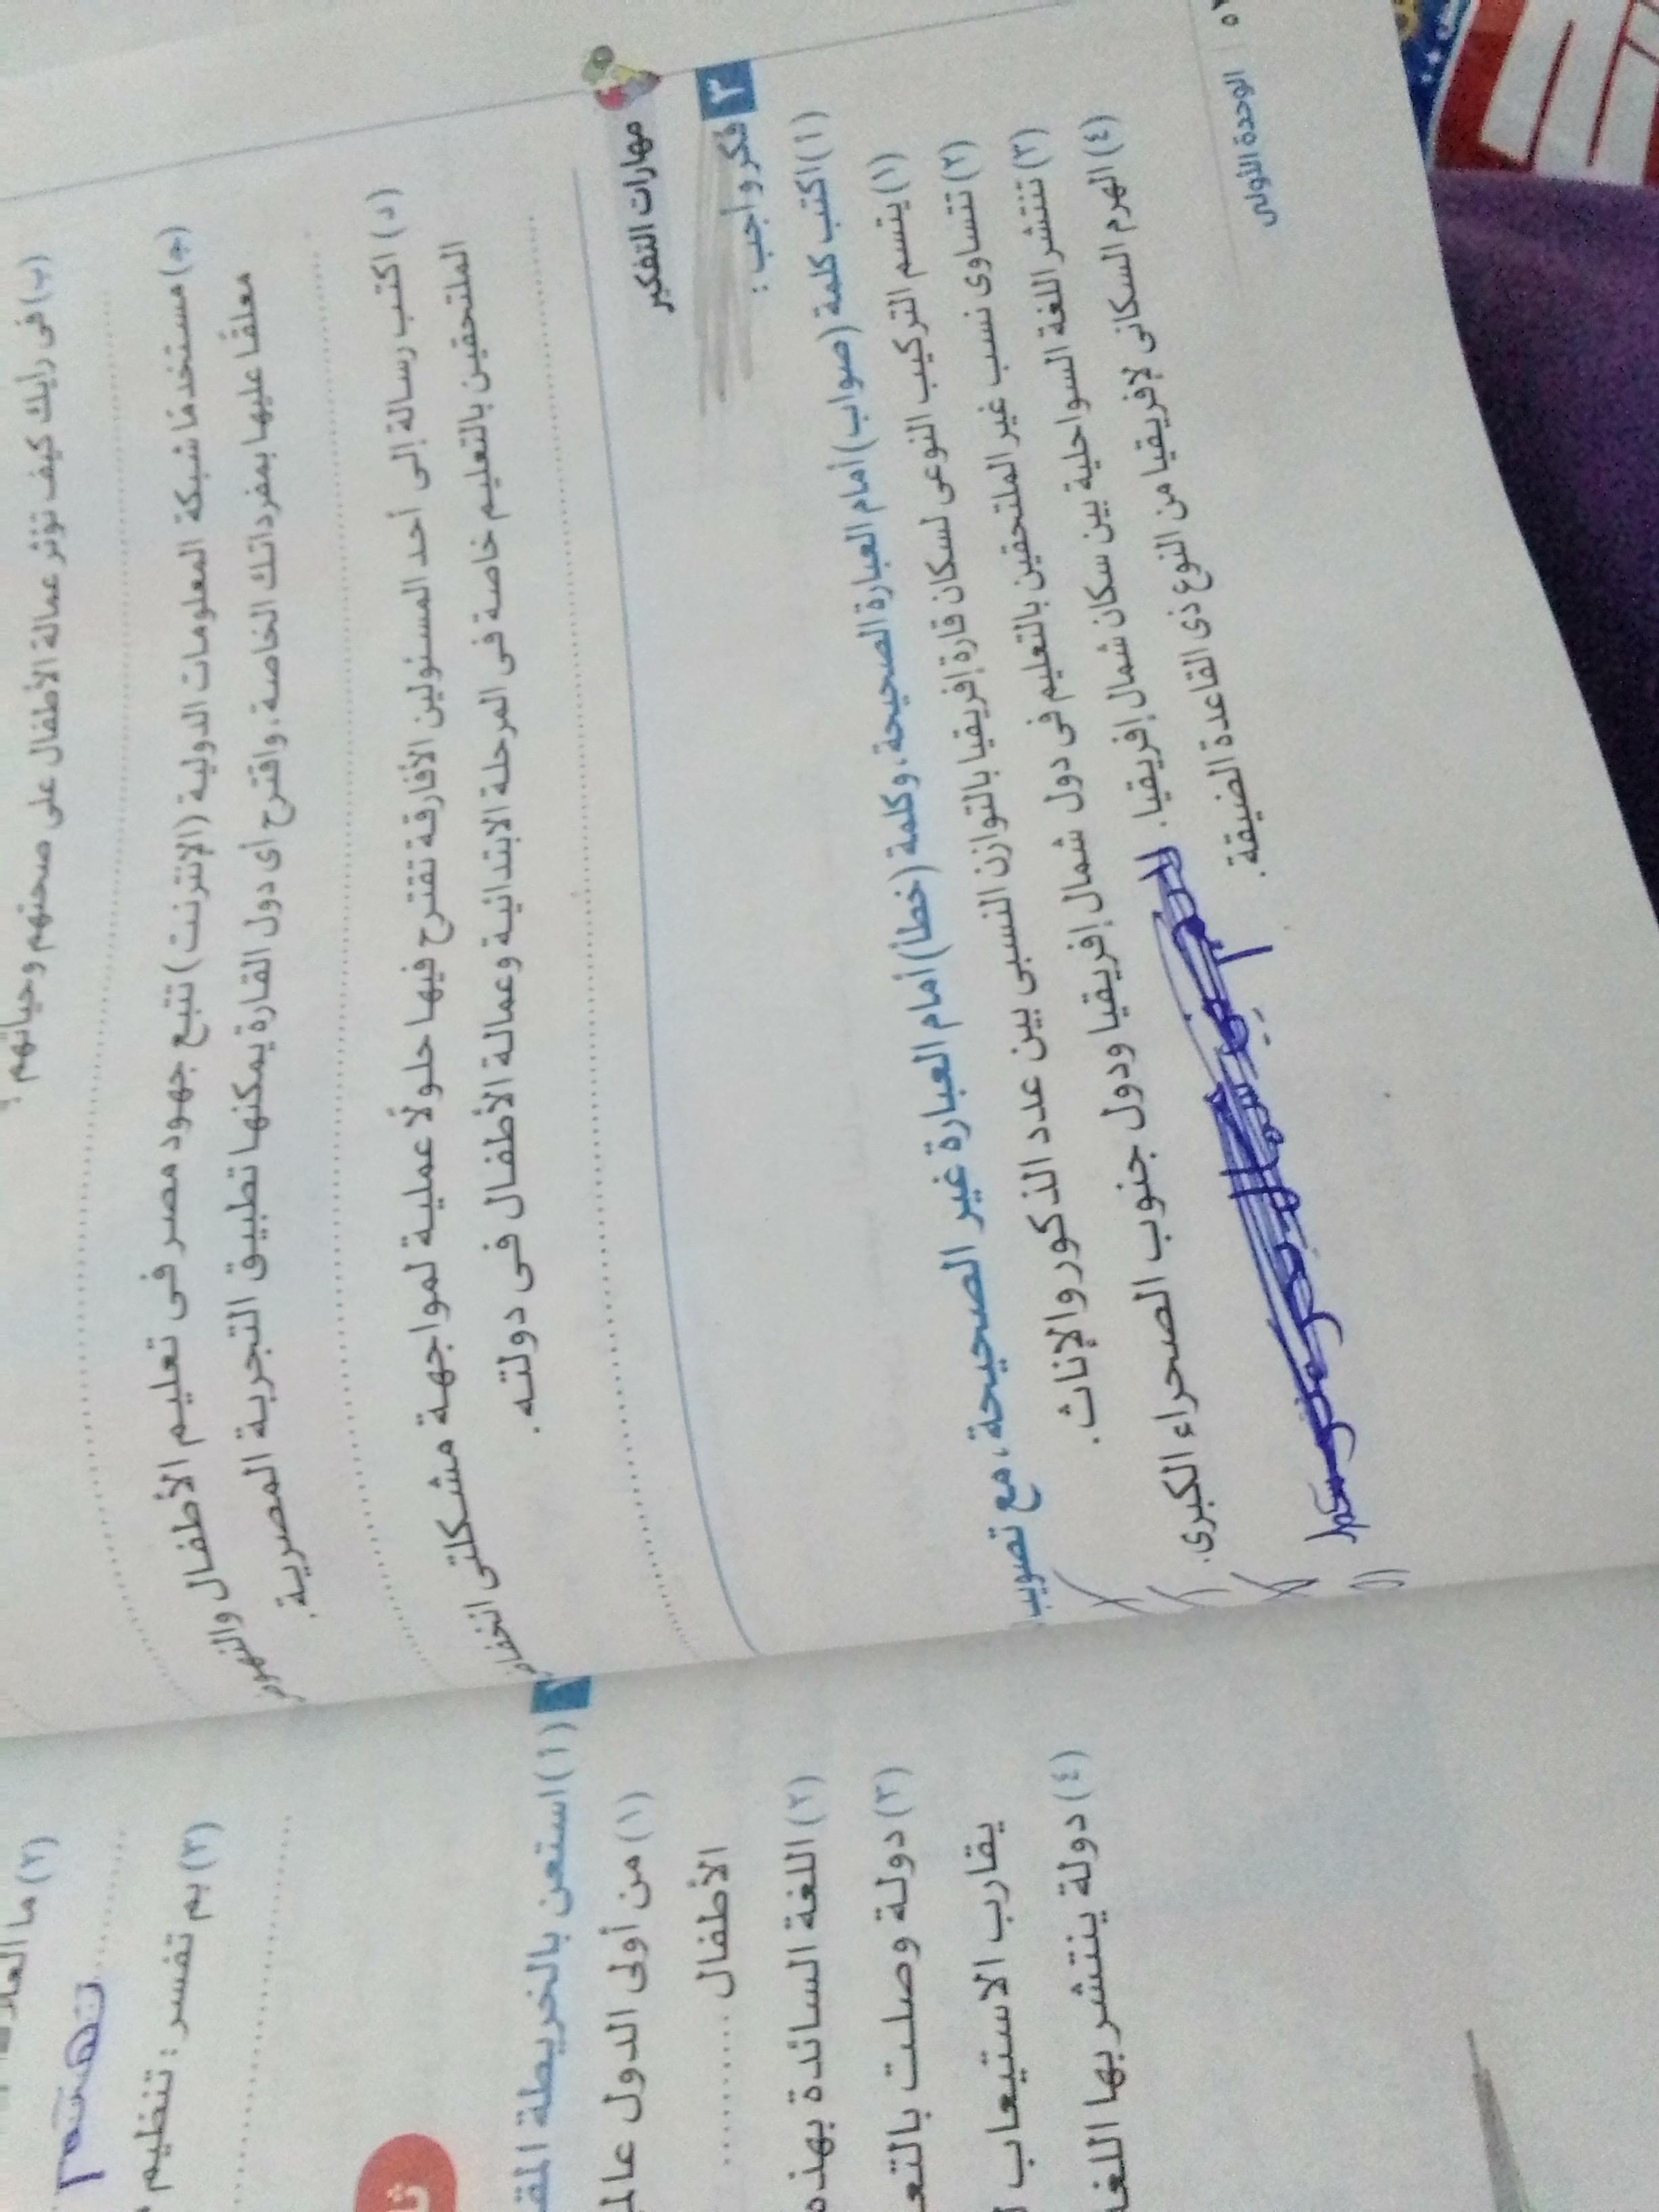 (ب) فى رأيك كيف تؤثر عمالة الأطفال على صحتهم وحياتهم ؟
(جـ) مستخدمًا شبكة المعلومات الدولية (الإنترنت) تتبع جهود مصر فى تعليم الأطفال والنهوض
معلقًا عليها بمفرداتك الخاصة، واقترح أى دول القارة يمكنها تطبيق التجربة المصرية.
(د) اكتب رسالة إلى أحد المسئولين الأفارقة تقترح فيها حلولًا عملية لمواجهة مشكلتى انخفاض
الملتحقين بالتعليم خاصة فى المرحلة الابتدائية وعمالة الأطفال فى دولته.
مهارات التفكير
٣ فكر وأجب :
(أ) اكتب كلمة (صواب) أمام العبارة الصحيحة، وكلمة (خطأ) أمام العبارة غير الصحيحة، مع تصويب
(١) يتسم التركيب النوعى لسكان قارة إفريقيا بالتوازن النسبى بين عدد الذكور والإناث.
(٢) تتساوى نسب غير الملتحقين بالتعليم فى دول شمال إفريقيا ودول جنوب الصحراء الكبرى.
(٣) تنتشر اللغة السواحلية بين سكان شمال إفريقيا.
(٤) الهرم السكانى لإفريقيا من النوع ذى القاعدة الضيقة.
الوحدة الأولى
(٢) ما العلا
(٣) بم تفسر : تنظيم
٢ (أ) استعن بالخريطة المق
(١) من أولى الدول عالم
الأطفال
(٢) اللغة السائدة بهذه
(٣) دولة وصلت بالتع
يقارب الاستيعاب ا
(٤) دولة ينتشر بها اللغا